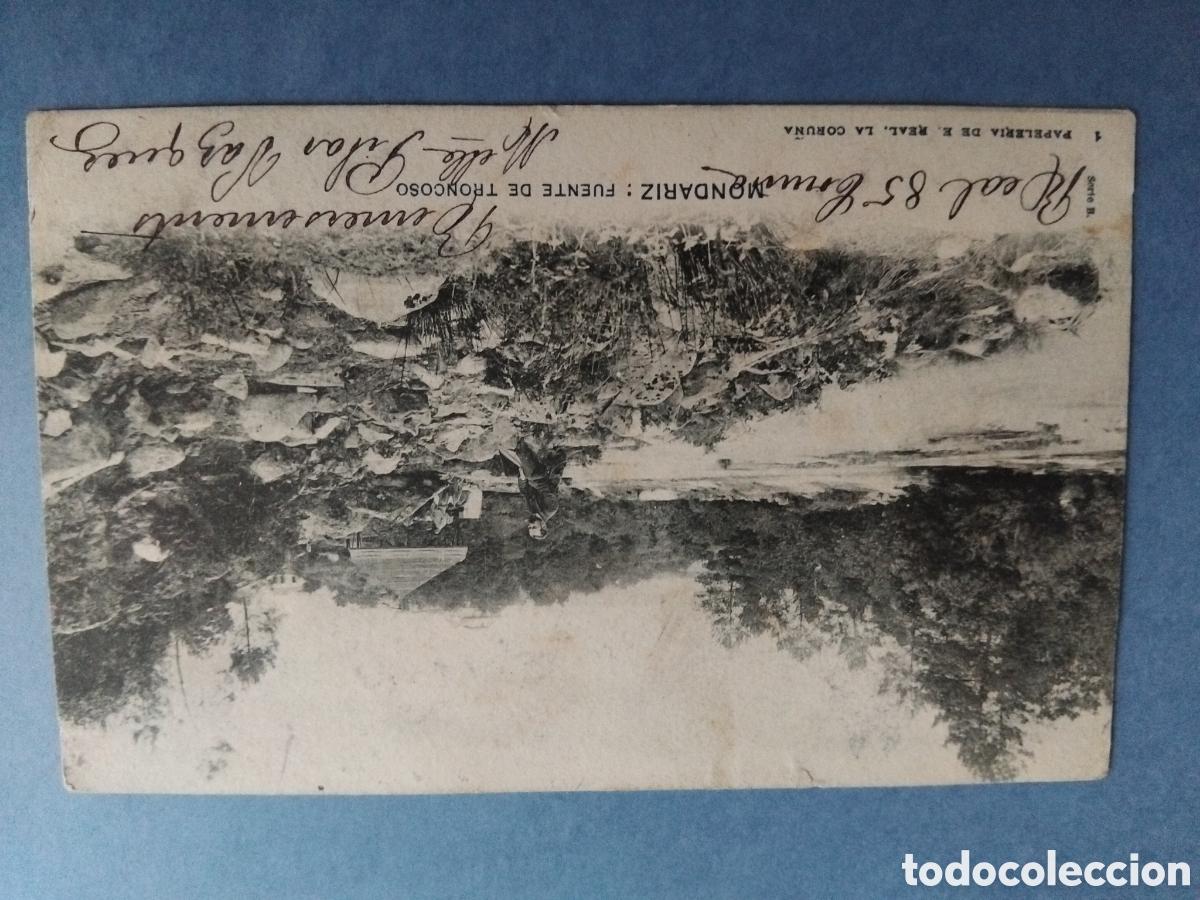 Serie B.
MONDARIZ : FUENTE DE TRONCOSO
1 PAPELERIA DE E. REAL, LA CORUÑA
Real 85 Coruña
Mlle Pilar Vazquez
todocoleccion